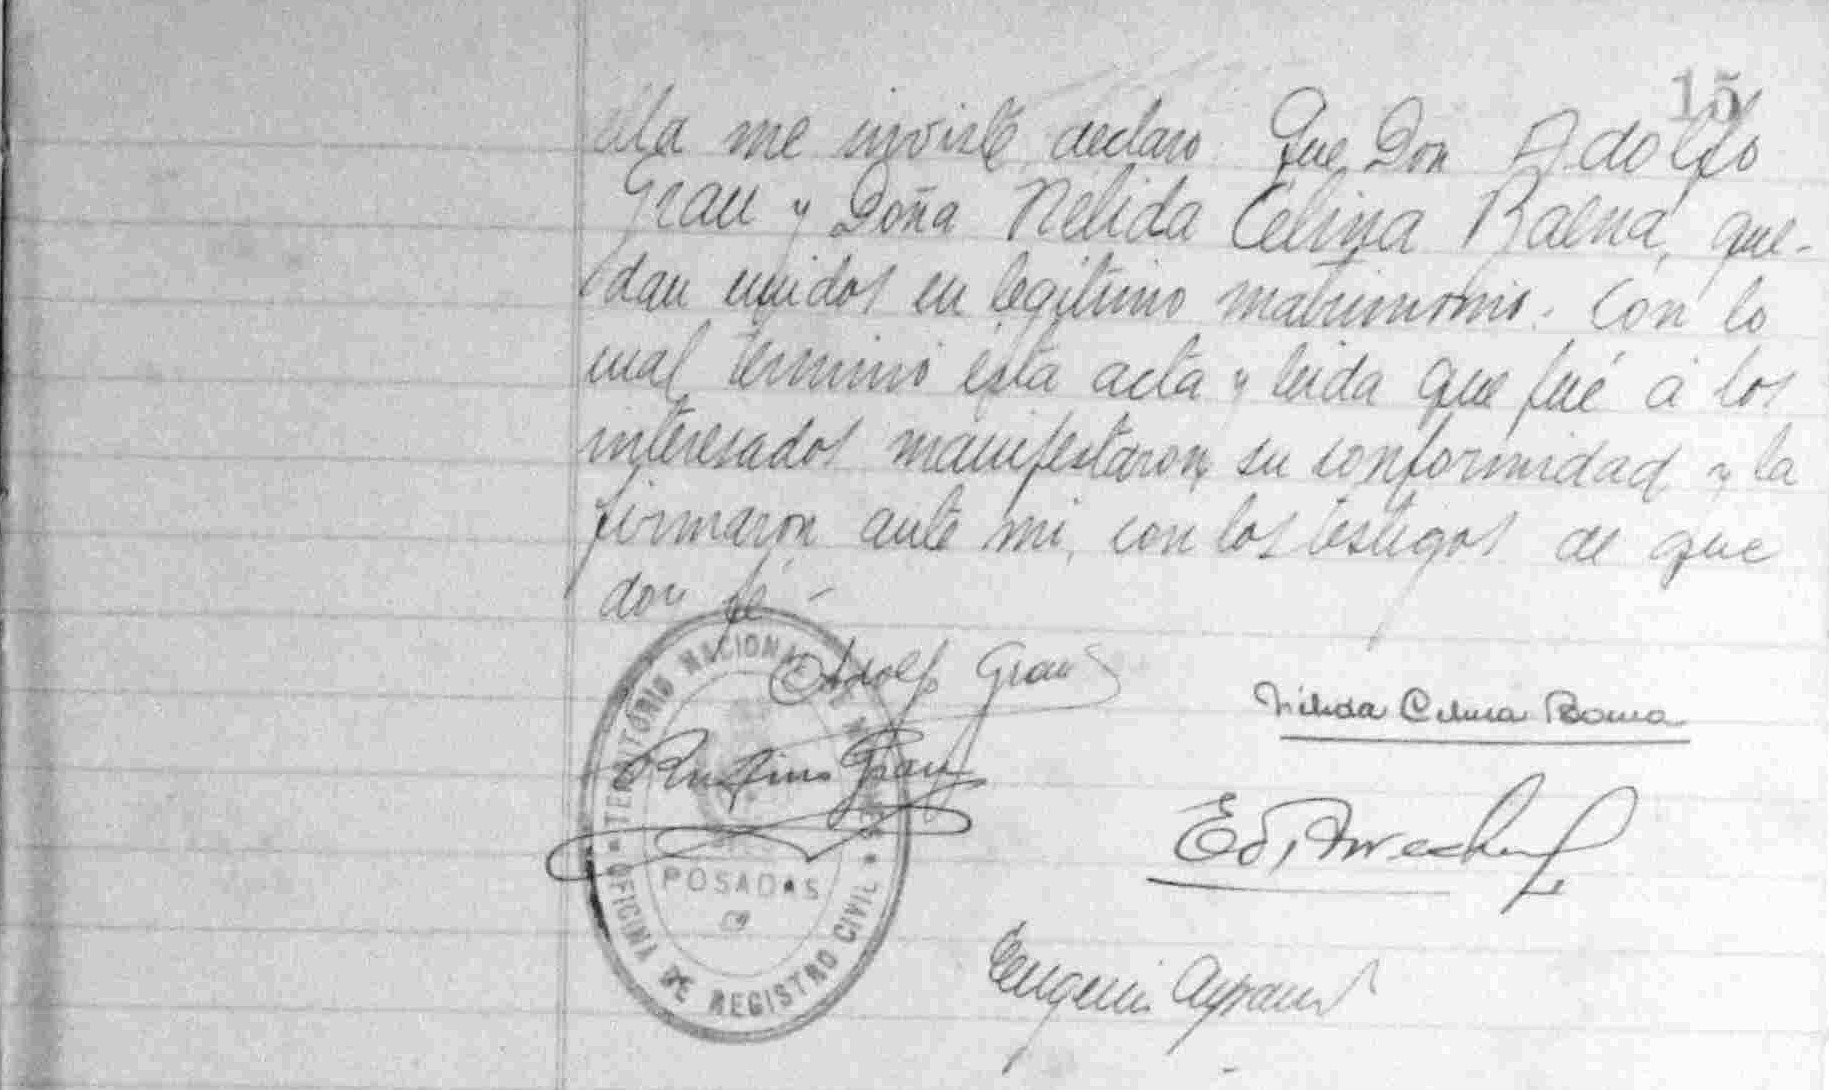 15
ella me inviste, declaro que Don Adolfo
Grau y Doña Nélida Celina Baena, que-
dan unidos en legítimo matrimonio. Con lo
cual terminó esta acta y leida que fué á los
interesados manifestaron su conformidad y la
firmaron ante mi, con los testigos de que
doy fé -
Adolfo Grau
Nélida Celina Baena
Grau
Eugenio
TERRITORIO NACIONAL DE MISIONES
POSADAS
OFICINA DE REGISTRO CIVIL